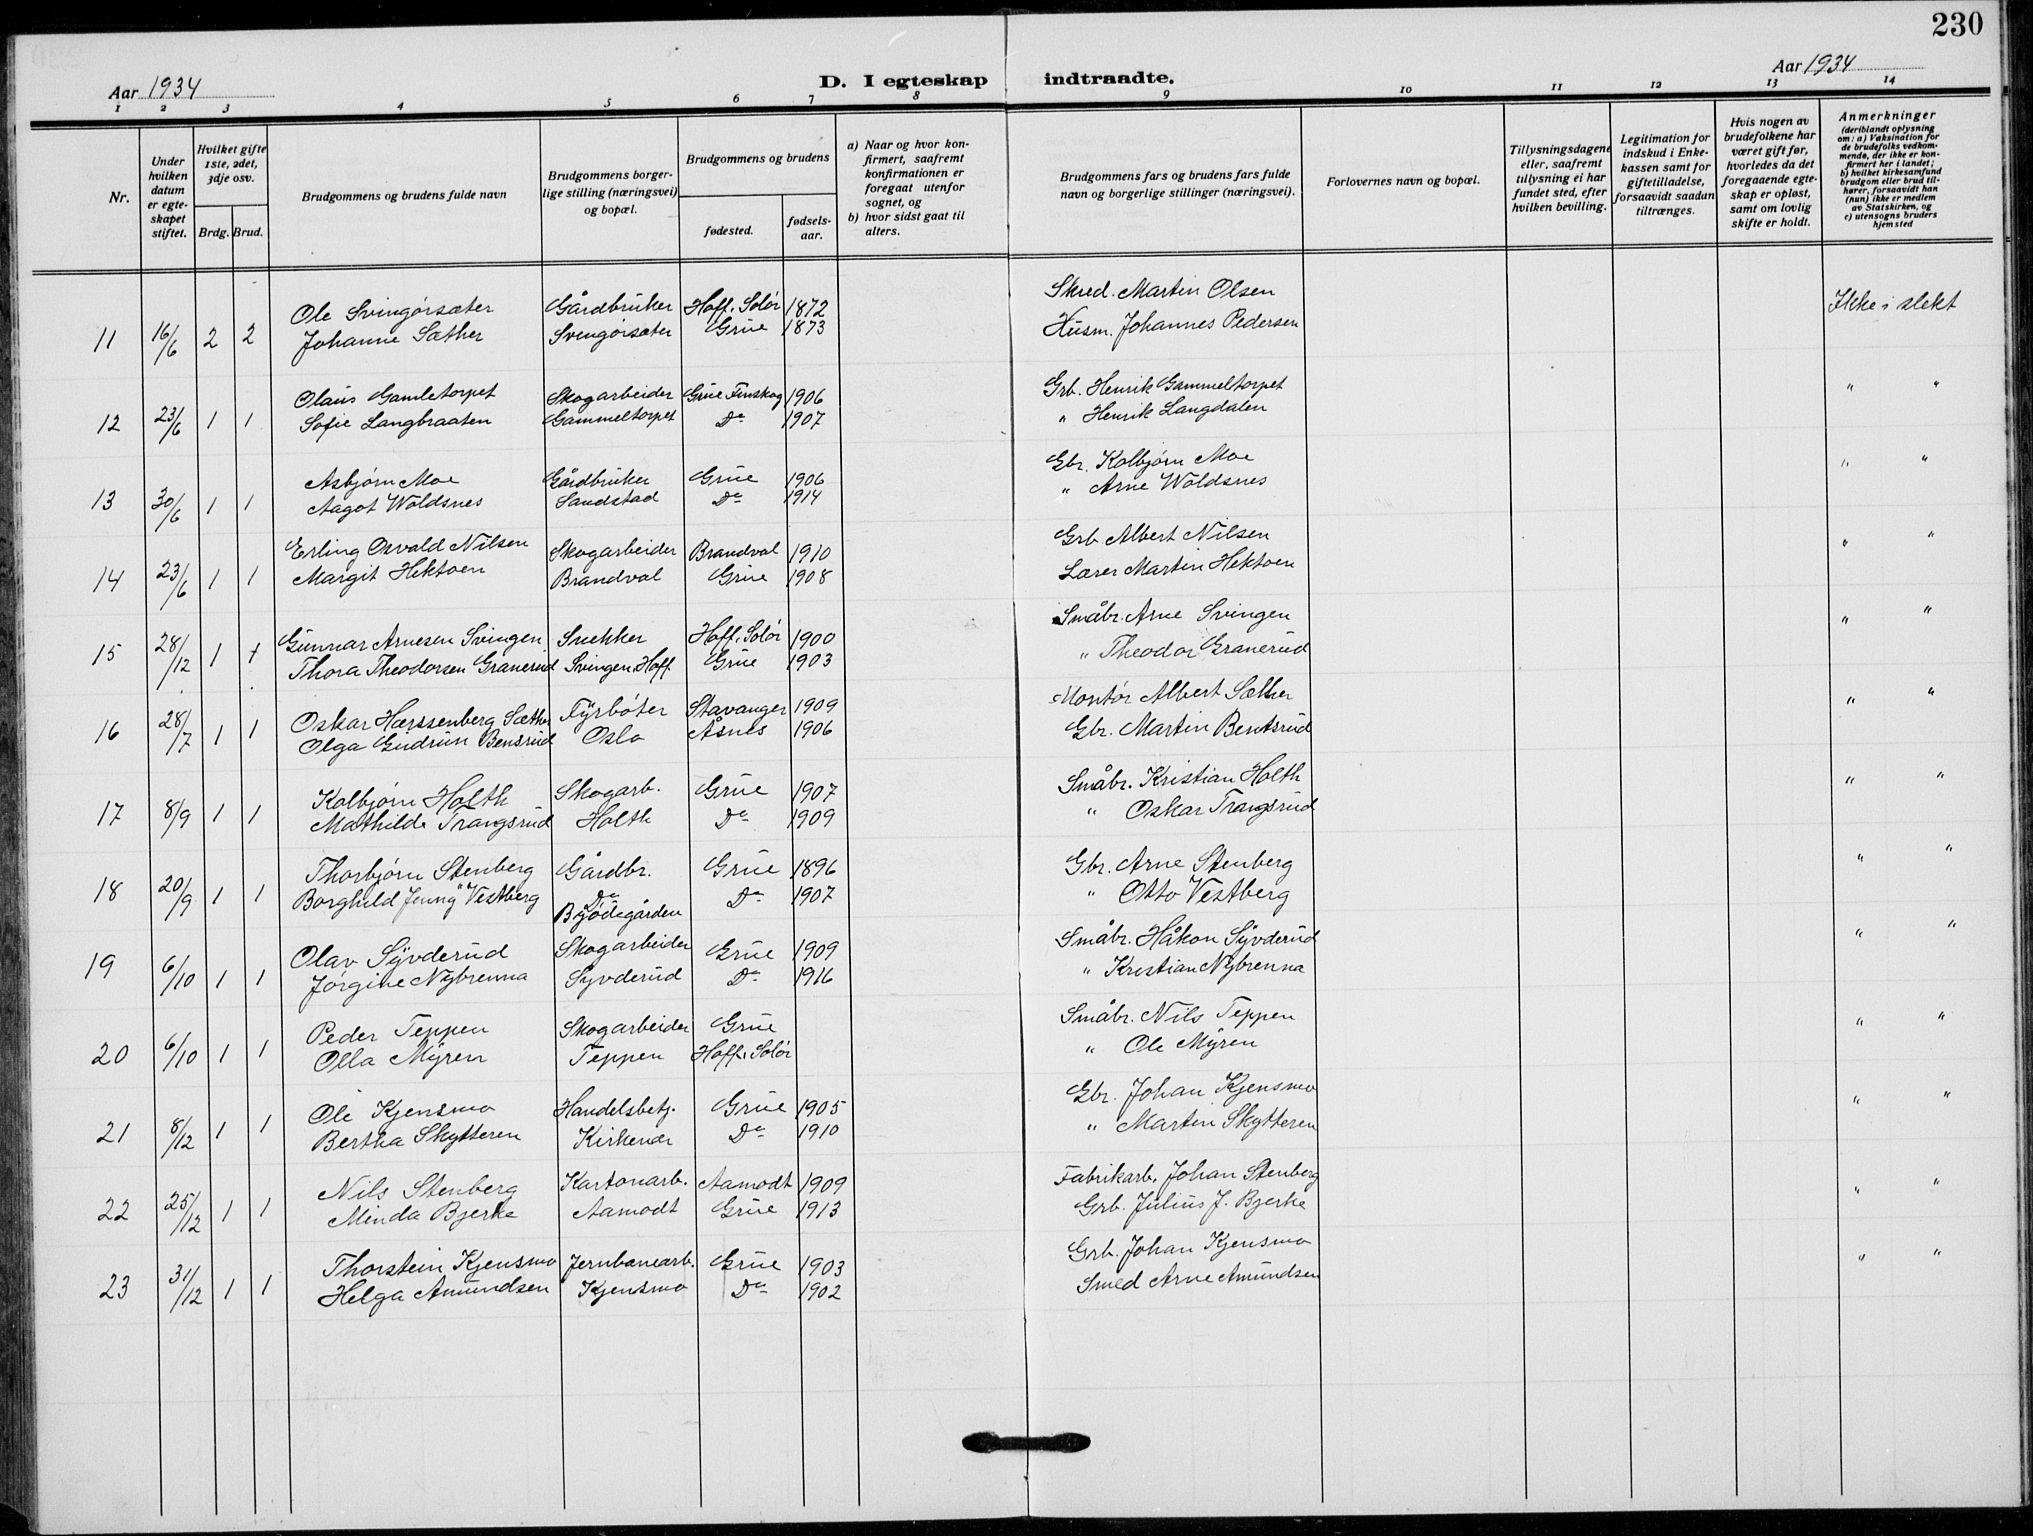 230
Aar 1934 D. I egteskap indtraadte. Aar 1934
1 2 3 4 5 6 7 8 9 10 11 12 13 14
Nr.
Under hvilken datum er egteskapet stiftet.
Hvilket gifte 1ste, 2det, 3dje osv.
Brdg. Brud.
Brudgommens og brudens fulde navn
Brudgommens borgerlige stilling (næringsvei) og bopæl.
Brudgommens og brudens
fødested. fødselsaar.
a) Naar og hvor konfirmert, saafremt konfirmationen er foregaat utenfor sognet, og
b) hvor sidst gaat til alters.
Brudgommens fars og brudens fars fulde navn og borgerlige stillinger (næringsvei).
Forlovernes navn og bopæl.
Tillysningsdagene eller, saafremt tillysning ei har fundet sted, efter hvilken bevilling.
Legitimation for indskud i Enkekassen samt for giftetilladelse, forsaavidt saadan tiltrænges.
Hvis nogen av brudefolkene har været gift før, hvorledes da det foregaaende egteskap er opløst, samt om lovlig skifte er holdt.
Anmerkninger
(deriblandt oplysning om: a) Vaksination for de brudefolks vedkommende, der ikke er konfirmert her i landet; b) hvilket kirkesamfund brudgom eller brud tilhører, forsaavidt han (hun) ikke er medlem av Statskirken, og c) utensogns bruders hjemsted
Ole Svingørsæter Gårdbruker Hoff, Solør 1872 Skred. Martin Olsen Ikke i slekt
11 16/6 2 2 Johanne Sæther Svingørsæter Grue 1873 Husm. Johannes Pedersen
Olaus Gamletorpet Skogarbeider Grue Finskog 1906 Grb. Henrik Gammeltorpet " "
12 23/6 1 1 Sofie Langbraaten Gammeltorpet Do 1907 " Henrik Langdalen
Asbjørn Moe Gårdbruker Grue 1906 Gbr. Kolbjørn Moe " "
13 30/6 1 1 Aagot Woldsnes Sandstad Do 1914 " Arne Woldsnes
Erling Osvald Nilsen Skogarbeider Brandval 1910 Grb. Albert Nilsen " "
14 23/6 1 1 Margit Hektoen Brandval Grue 1908 Lærer Martin Hektoen
Gunnar Arnesen Svingen Snekker Hoff, Solør 1900 Småbr. Arne Svingen " "
15 28/12 1 1 Thora Theodorsen Granerud Svingen, Hoff. Grue 1903 " Theodor Granerud
Oskar Hærssenberg Sæther Fyrbøter Stavanger 1909 Montør Albert Sæther " "
16 28/7 1 1 Olga Gudrun Bensrud Oslo Åsnes 1906 Gbr. Martin Bentsrud
Kolbjørn Holth Skogarb. Grue 1907 Småbr. Kristian Holth " "
17 8/9 1 1 Mathilde Trangsrud Holth Do 1909 " Oskar Trangsrud
Thorbjørn Stenberg Gårdbr. Grue 1896 Gbr. Arne Stenberg " "
18 20/9 1 1 Borghild Jenny Vestberg Do 1907 " Otto Vestberg
Olav Syvderud Skogarbeider Grue 1909 Småbr. Håkon Syvderud " "
19 6/10 1 1 Jørgine Nybrenna Syvderud Do 1916 " Kristian Nybrenna
Peder Teppen Skogarbeider Grue Småbr. Nils Teppen " "
20 6/10 1 1 Olla Myren Teppen Hoff, Solør " Ole Myren
Ole Kjensmo Handelsbetj. Grue 1905 Gbr. Johan Kjensmo " "
21 8/12 1 1 Bertha Skytteren Kirkenær Do 1910 " Martin Skytteren
Nils Stenberg Kartonarb. Aamodt 1909 Fabrikarb. Johan Stenberg " "
22 25/12 1 1 Minda Bjerke Aamodt Grue 1913 Grb. Julius J. Bjerke
Thorstein Kjensmo Jernbanearb. Grue 1903 Grb. Johan Kjensmo " "
23 31/12 1 1 Helga Amundsen Kjensmo Do 1902 Smed Arne Amundsen